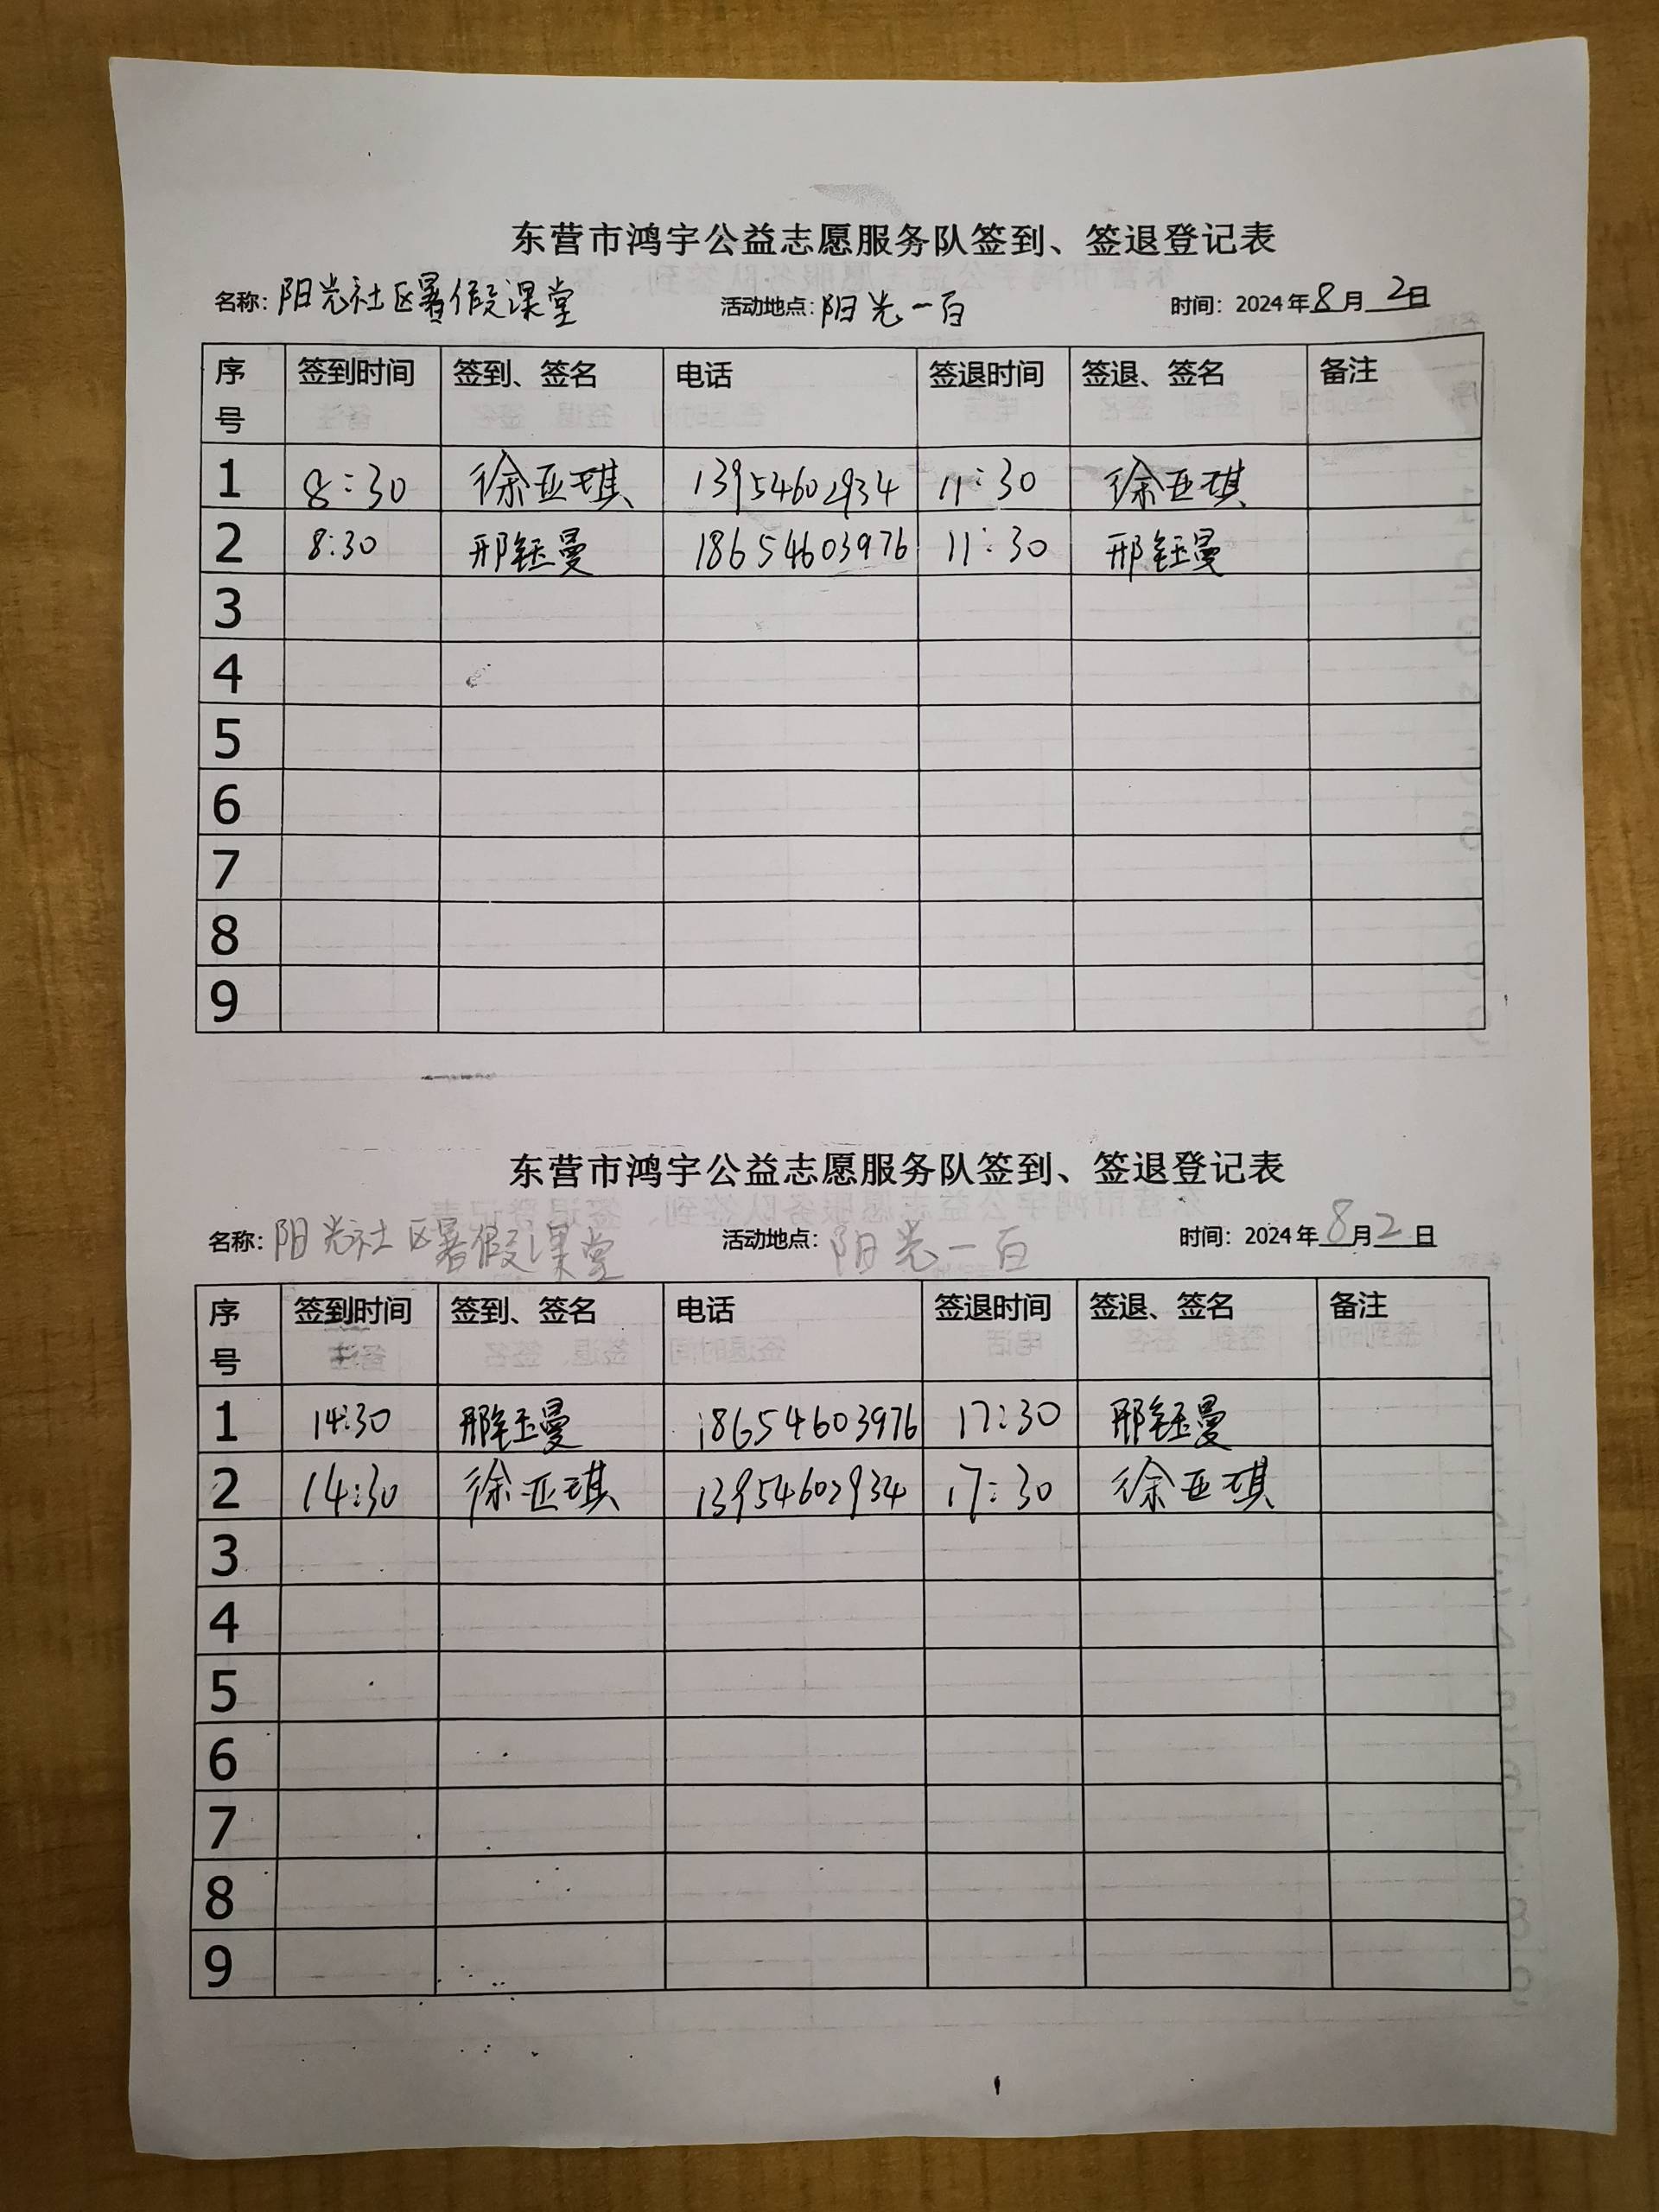 东营市鸿宇公益志愿服务队签到、签退登记表
名称：阳光社区暑假课堂 活动地点：阳光一百 时间：2024年8月2日
序号 签到时间 签到、签名 电话 签退时间 签退、签名 备注
1 8:30 徐亚琪 13954602934 11:30 徐亚琪
2 8:30 邢钰曼 18654603976 11:30 邢钰曼
3
4
5
6
7
8
9
东营市鸿宇公益志愿服务队签到、签退登记表
名称：阳光社区暑假课堂 活动地点：阳光一百 时间：2024年8月2日
序号 签到时间 签到、签名 电话 签退时间 签退、签名 备注
1 14:30 邢钰曼 18654603976 17:30 邢钰曼
2 14:30 徐亚琪 13954602934 17:30 徐亚琪
3
4
5
6
7
8
9